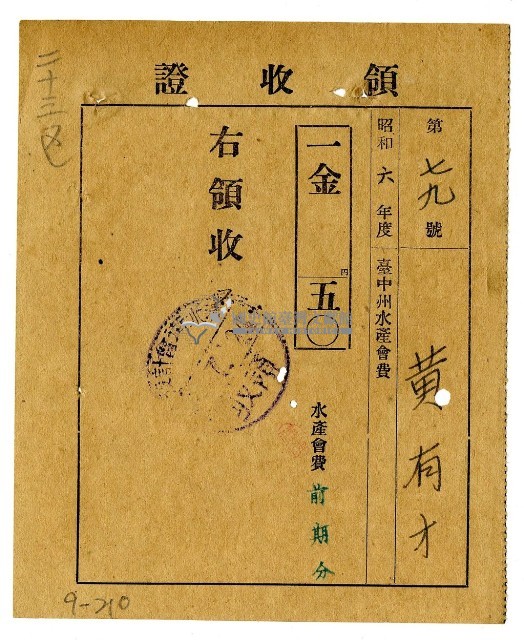 領收證
第七九號
黃有才
昭和六年度
臺中州水產會費
一金 円 五〇
水產會費前期分
右領收
二十三
9-210